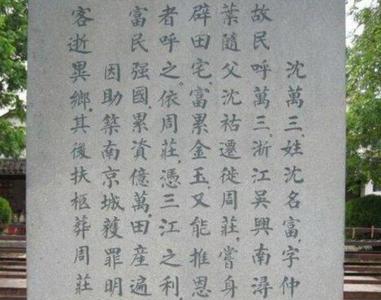 沈萬三、姓沈名富、字仲
故民呼萬三、浙江吳興南潯
葉隨父沈祐遷徙周莊、嘗身
辟田宅、富累金玉、又能推恩
者呼之、依周莊、憑三江之利
富民强國、累資億萬、田產遍
因助築南京城、獲罪明
客逝異鄉、其後扶柩葬周莊